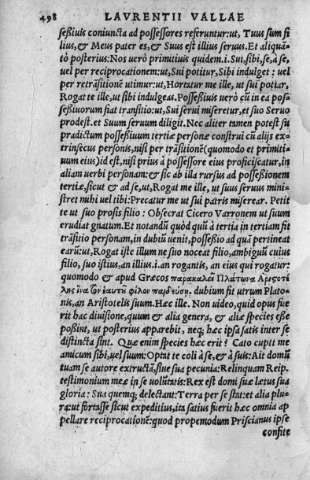 498 LAVRENTII VALLAE
ſeßiuis coniuncta ad poſſeſſores referuntur: ut, Tuus ſum fi
lius, & Meus pater es, & Suus eſt illius ſeruus. Et aliquã
to poſterius. Nos uerò primitiuis quidem .i. Sui, ſibi, ſe, à ſe,
uel per reciprocationem: ut, Sui potitur, Sibi indulget : uel
per retrãſitionē utimur: ut, Hortatur me ille, ut ſui potiar,
Rogat te ille, ut ſibi indulgeas. Poßeßiuis uerò cũ in ea poſ=
ſeßiuorum fiat trãſitio: ut, Sui ſerui miſeretur, et ſuo Seruo
prodeſt. et Suum ſeruum diligit. Nec aliter tamen poteſt ſu
pradictum poſſeßiuum tertiæ perſonæ conſtrui cũ alijs ex=
trinſecus perſonis, niſi per trãſitionē (quomodo et primiti=
uum eius) id eſt, niſi prius à poſſeſſore eius proficiſcatur, in
aliam uerbi perſonam: & ſic ab illa rurſus ad poſſeßionem
tertiæ. ſicut & ad ſe, ut, Rogat me ille, ut ſuus ſeruus mini=
ſtret mihi uel tibi: Precatur me ut ſui patris miſerear. Petit
te ut ſuo proſis filio : Obſecrat Cicero Varronem ut ſuum
erudiat gnatum. Et notandũ quòd quũ à tertia in tertiam fit
trãſitio perſonam, in dubiũ uenit, poſſeßio ad quã pertineat
earũ: ut, Rogat iſte illum ne ſuo noceat filio, ambigui cuius
filio, ſuo iſtius, an illius .i. an rogantis, an eius qui rogatur:
quomodo & apud Græcos παρακαλῶ Πλάτωνα Ἀριςοτέ
λης ἵνα τὸν ἑαυτοῦ φίλον παιδεύση. dubium ſit utrum Plato=
nis, an Ariſtotelis ſuum. Hæc ille. Non uideo, quid opus fue
rit hac diuiſione, quum & alia genera, & aliæ ſpecies eſſe
poßint, ut poſterius apparebit, neq; hæc ipſa ſatis inter ſe
diſtincta ſint. Quæ enim ſpecies hæc erit ? Cato cupit me
amicum ſibi, uel ſuum: Optat te coli à ſe, & à ſuis: Ait domũ
tuam ſe autore extructã, ſiue ſua pecunia: Relinquam Reip.
teſtimonium meæ in ſe uolũtatis: Rex eſt domi ſuæ lætus ſua
gloria: Sua quemq; delectant: Terra per ſe ſtat: et alia plu=
ra: ut fortaſſe ſicut expeditius, ita ſatius fuerit hæc omnia ap
pellare reciprocationē: quod propemodum Priſcianus ipſe
confite